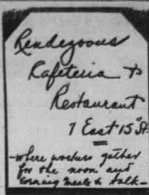 Rendezvous
Cafeteria &
Restaurant
7 East 15 St
—where workers gather
for the noon and
evening meals & talk—